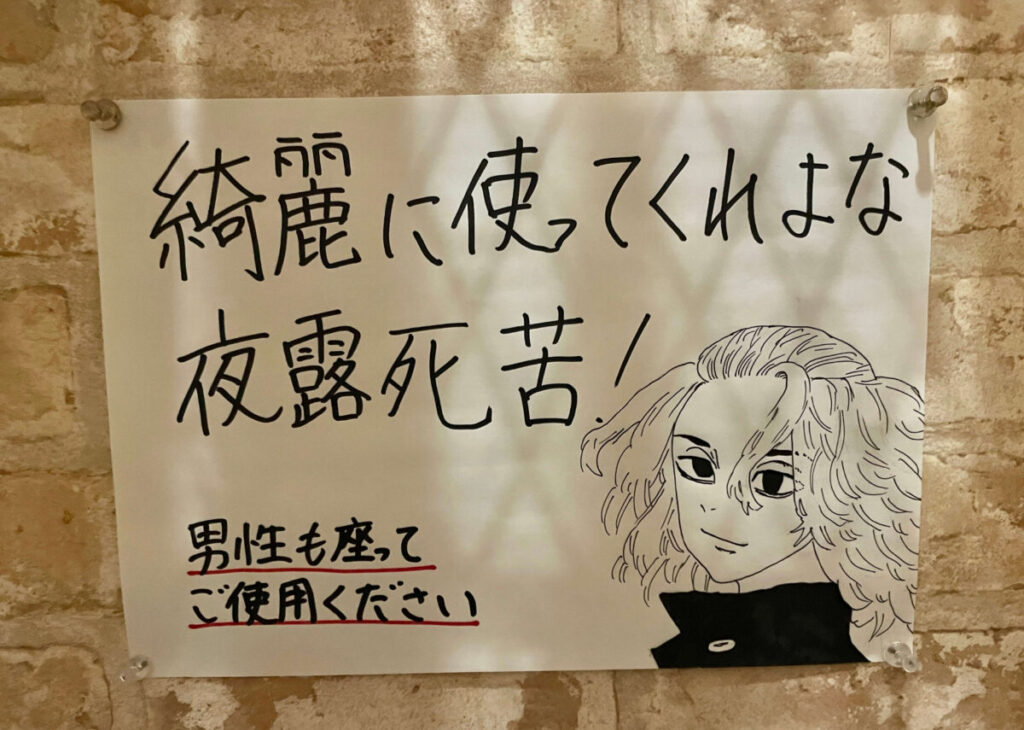 綺麗に使ってくれよな
夜露死苦!
男性も座って
ご使用ください